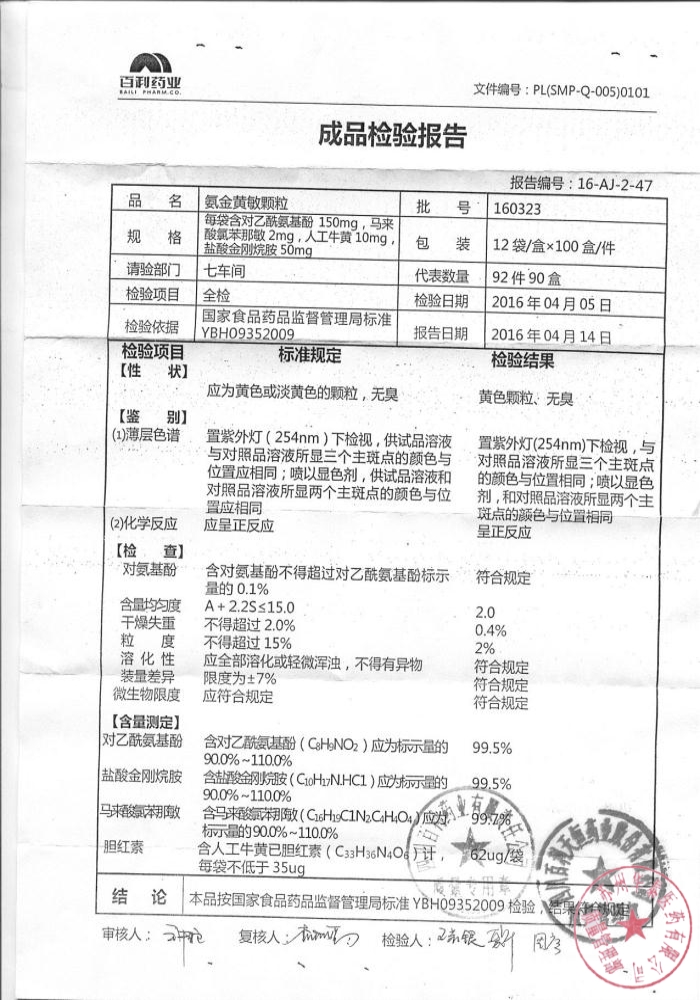 百利药业
BAILI PHARM.CO.
文件编号：PL(SMP-Q-005)0101
成品检验报告
报告编号：16-AJ-2-47
品 名 氨金黄敏颗粒 批 号 160323
规 格 每袋含对乙酰氨基酚 150mg，马来酸氯苯那敏 2mg，人工牛黄 10mg，盐酸金刚烷胺 50mg 包 装 12 袋/盒×100 盒/件
请验部门 七车间 代表数量 92 件 90 盒
检验项目 全检 检验日期 2016 年 04 月 05 日
检验依据 国家食品药品监督管理局标准 YBH09352009 报告日期 2016 年 04 月 14 日
检验项目 标准规定 检验结果
【性 状】
应为黄色或淡黄色的颗粒，无臭 黄色颗粒、无臭
【鉴 别】
(1)薄层色谱 置紫外灯（254nm）下检视，供试品溶液 置紫外灯(254nm)下检视，与
与对照品溶液所显三个主斑点的颜色与 对照品溶液所显三个主斑点
位置应相同；喷以显色剂，供试品溶液和 的颜色与位置相同；喷以显色
对照品溶液所显两个主斑点的颜色与位 剂，和对照品溶液所显两个主
置应相同 斑点的颜色与位置相同
(2)化学反应 应呈正反应 呈正反应
【检 查】
对氨基酚 含对氨基酚不得超过对乙酰氨基酚标示 符合规定
量的 0.1%
含量均匀度 A＋2.2S≤15.0 2.0
干燥失重 不得过 2.0% 0.4%
粒 度 不得过 15% 2%
溶 化 性 应全部溶化或轻微浑浊，不得有异物 符合规定
装量差异 限度为±7% 符合规定
微生物限度 应符合规定 符合规定
【含量测定】
对乙酰氨基酚 含对乙酰氨基酚（C8H9NO2）应为标示量的 99.5%
90.0%~110.0%
盐酸金刚烷胺 含盐酸金刚烷胺（C10H17N.HC1）应为标示量的 99.5%
90.0%~110.0%
马来酸氯苯那敏 含马来酸氯苯那敏（C16H19C1N2.C4H4O4）应为 99.7%
标示量的 90.0%~110.0%
胆红素 含人工牛黄已胆红素（C33H36N4O6）计， 62ug/袋
每袋不低于 35ug
结 论 本品按国家食品药品监督管理局标准 YBH09352009 检验，结果符合规定
审核人： 复核人： 检验人：
质量专用章